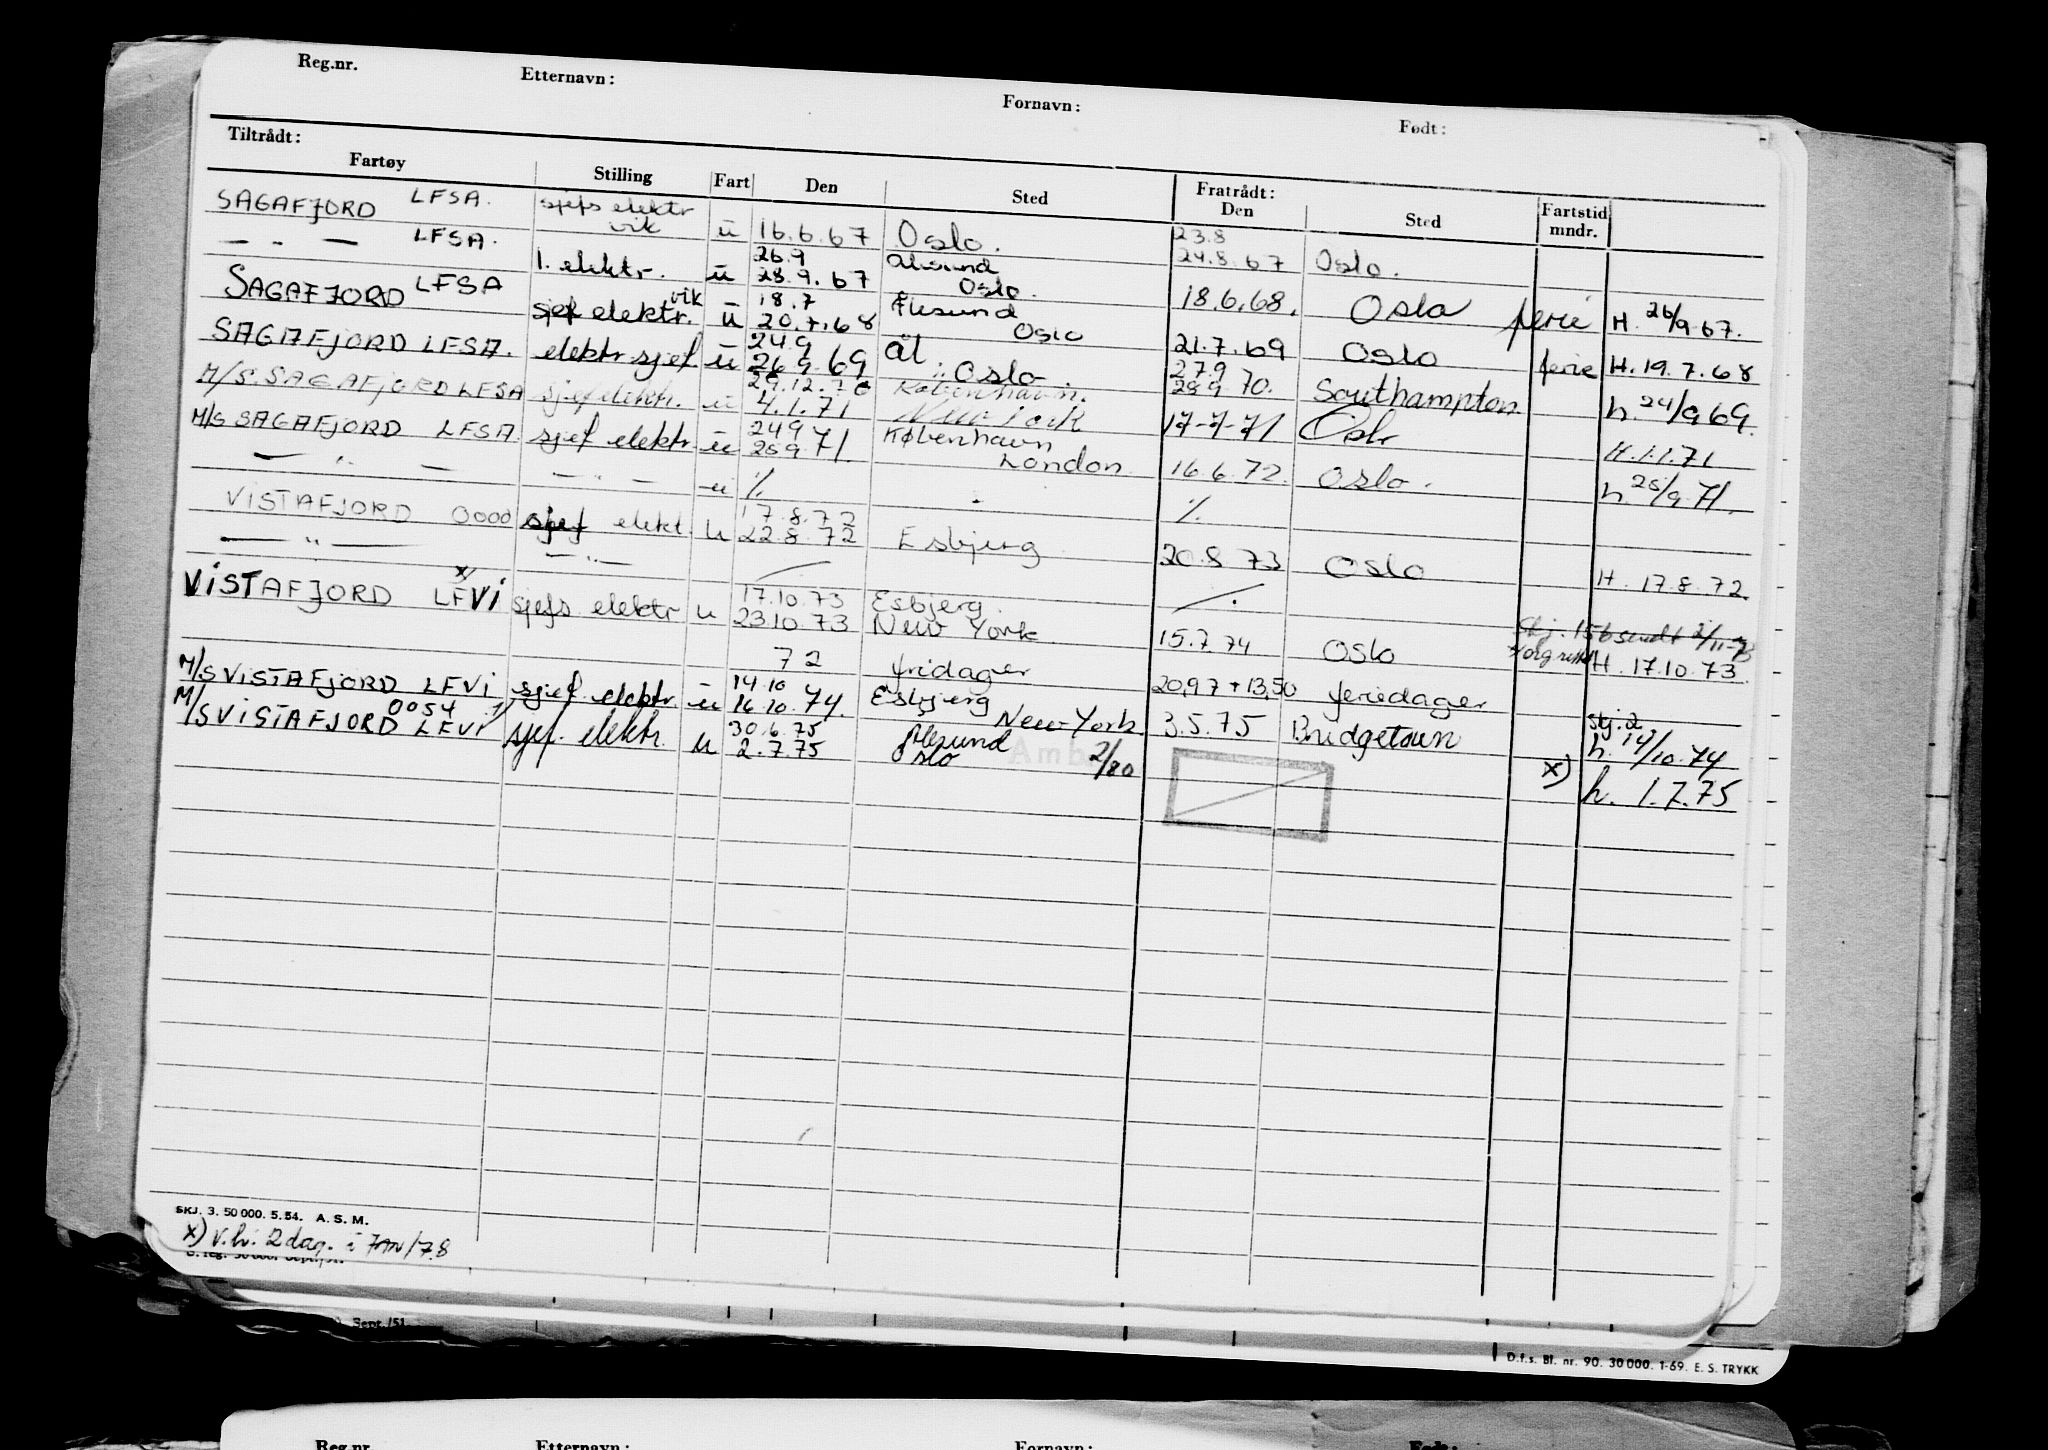 Reg.nr. Etternavn: Fornavn: Født:
Tiltrådt: Fratrådt:
Fartøy Stilling Fart Den Sted Den Sted Fartstid mndr.
SAGAFJORD LFSA. sjefs elektr vik ü 16.6.67 Oslo. 23.8 24.8.67 Oslo.
— " — LFSA. 1. elektr. ü 26.9 28.9.67 Ålesund Oslo. 18.6.68. Oslo ferie H. 26/9.67.
SAGAFJORD LFSA sjef elektr. vik ü 18.7 20.7.68 Ålesund Oslo 21.7.69 Oslo ferie H. 19.7.68
SAGAFJORD LFSA. elektr.sjef. ü 24.9 26.9.69 Ål Oslo. 27.9 28.9.70. Southampton h. 24/9 69.
M/S. SAGAFJORD LFSA sjef elektr. ü 29.12.70 4.1.71 København. New York 17-7-71 Oslo H.1.1.71
M/S SAGAFJORD LFSA sjef elektr. ü 24.9 25.9.71. København London 16.6.72. Oslo. h. 25/9.71.
— " — — " — ü ./. " ./.
VISTAFJORD 0000 sjef elekt. u 17.8.72 22.8.72 Esbjerg 20.8.73 Oslo H. 17.8.72.
— " — — " —
VISTAFJORD x/ LFVI sjefs elektr u 17.10.73 23.10.73 Esbjerg. New York 15.7.74 Oslo H. 17.10.73.
72 fridager 20,97 + 13,50 feriedager
M/S VISTAFJORD LFVI sjef. elektr. ü 14.10 16.10.74. Esbjerg New York 3.5.75 Bridgetown skj. 2 h. 14/10.74
M/S VISTAFJORD 0054 LFVI sjef. elektr. u 30.6.75 2.7.75 Ålesund Oslo 2/80 x) h. 1.7.75
SKJ. 3. 50 000. 5.54. A. S. M.
x) v.h. 2 dag. i JAN/78
Sept./51
D.f.s. Bl. nr. 90. 30 000. 1-69. E. S. TRYKK
Reg.nr. Etternavn: Fornavn: Født: